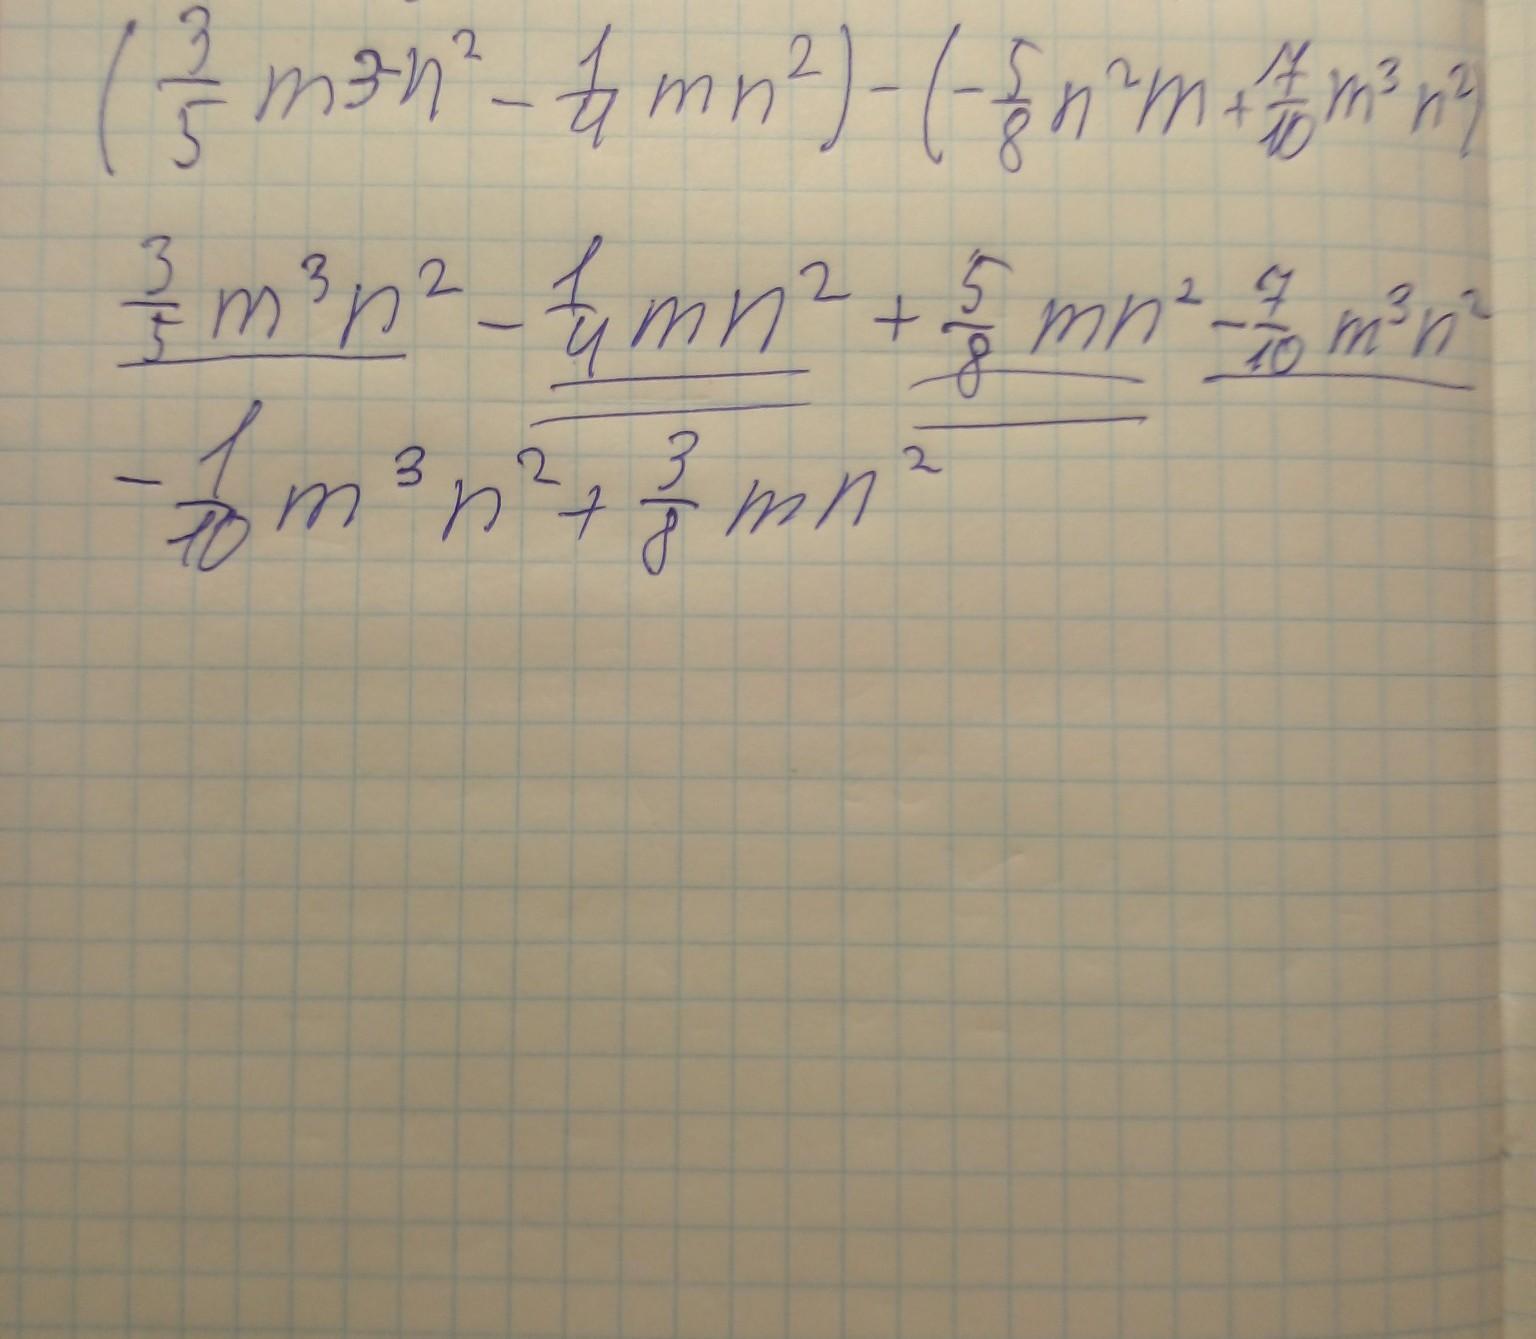 (3/5 m3n² - 1/4 mn²) - (-5/8 n²m + 7/10 m³n²)
3/5 m³n² - 1/4 mn² + 5/8 mn² - 7/10 m³n²
- 1/10 m³n² + 3/8 mn²